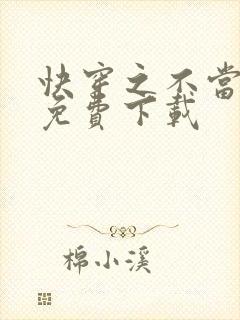 快穿之不當
免費下載
棉小溪